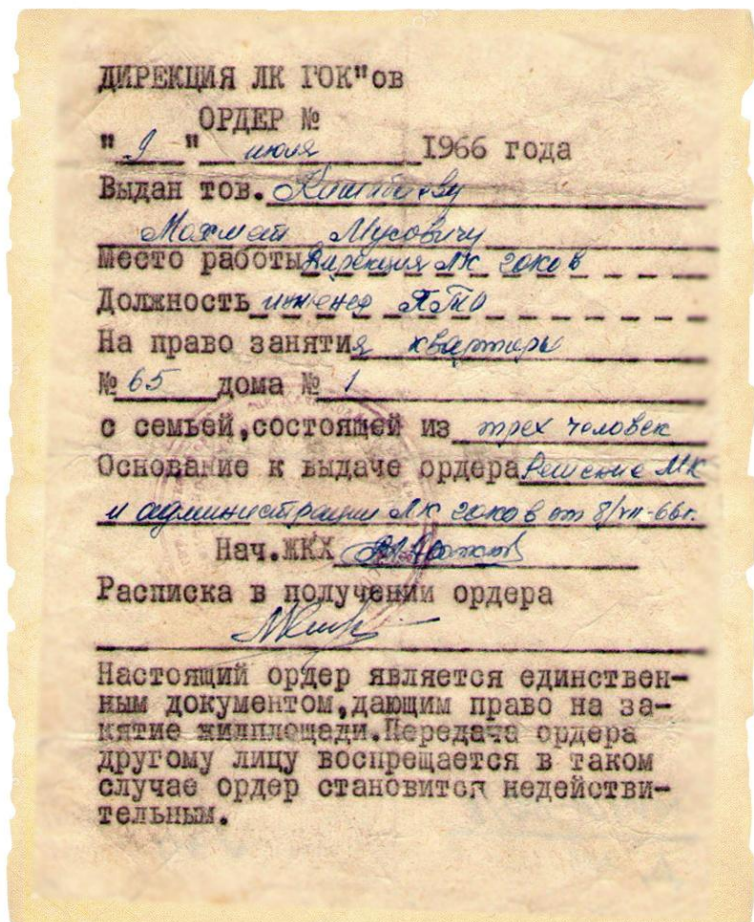 ДИРЕКЦИЯ ЛК ГОК"ов
ОРДЕР №
"9" июля 1966 года
Выдан тов.
Мусовичу
Место работы Дирекция ЛК ГОКов
Должность инженер ПТО
На право занятия квартиры
№ 65 дома № 1
с семьей,состоящей из трех человек
Основание к выдаче ордера Решение МК
и администрации ЛК ГОКов от 8/VII-66г.
Нач.ЖКХ
Расписка в получении ордера
Настоящий ордер является единствен-
ным документом,дающим право на за-
нятие жилплощади.Передача ордера
другому лицу воспрещается в таком
случае ордер становится недействи-
тельным.